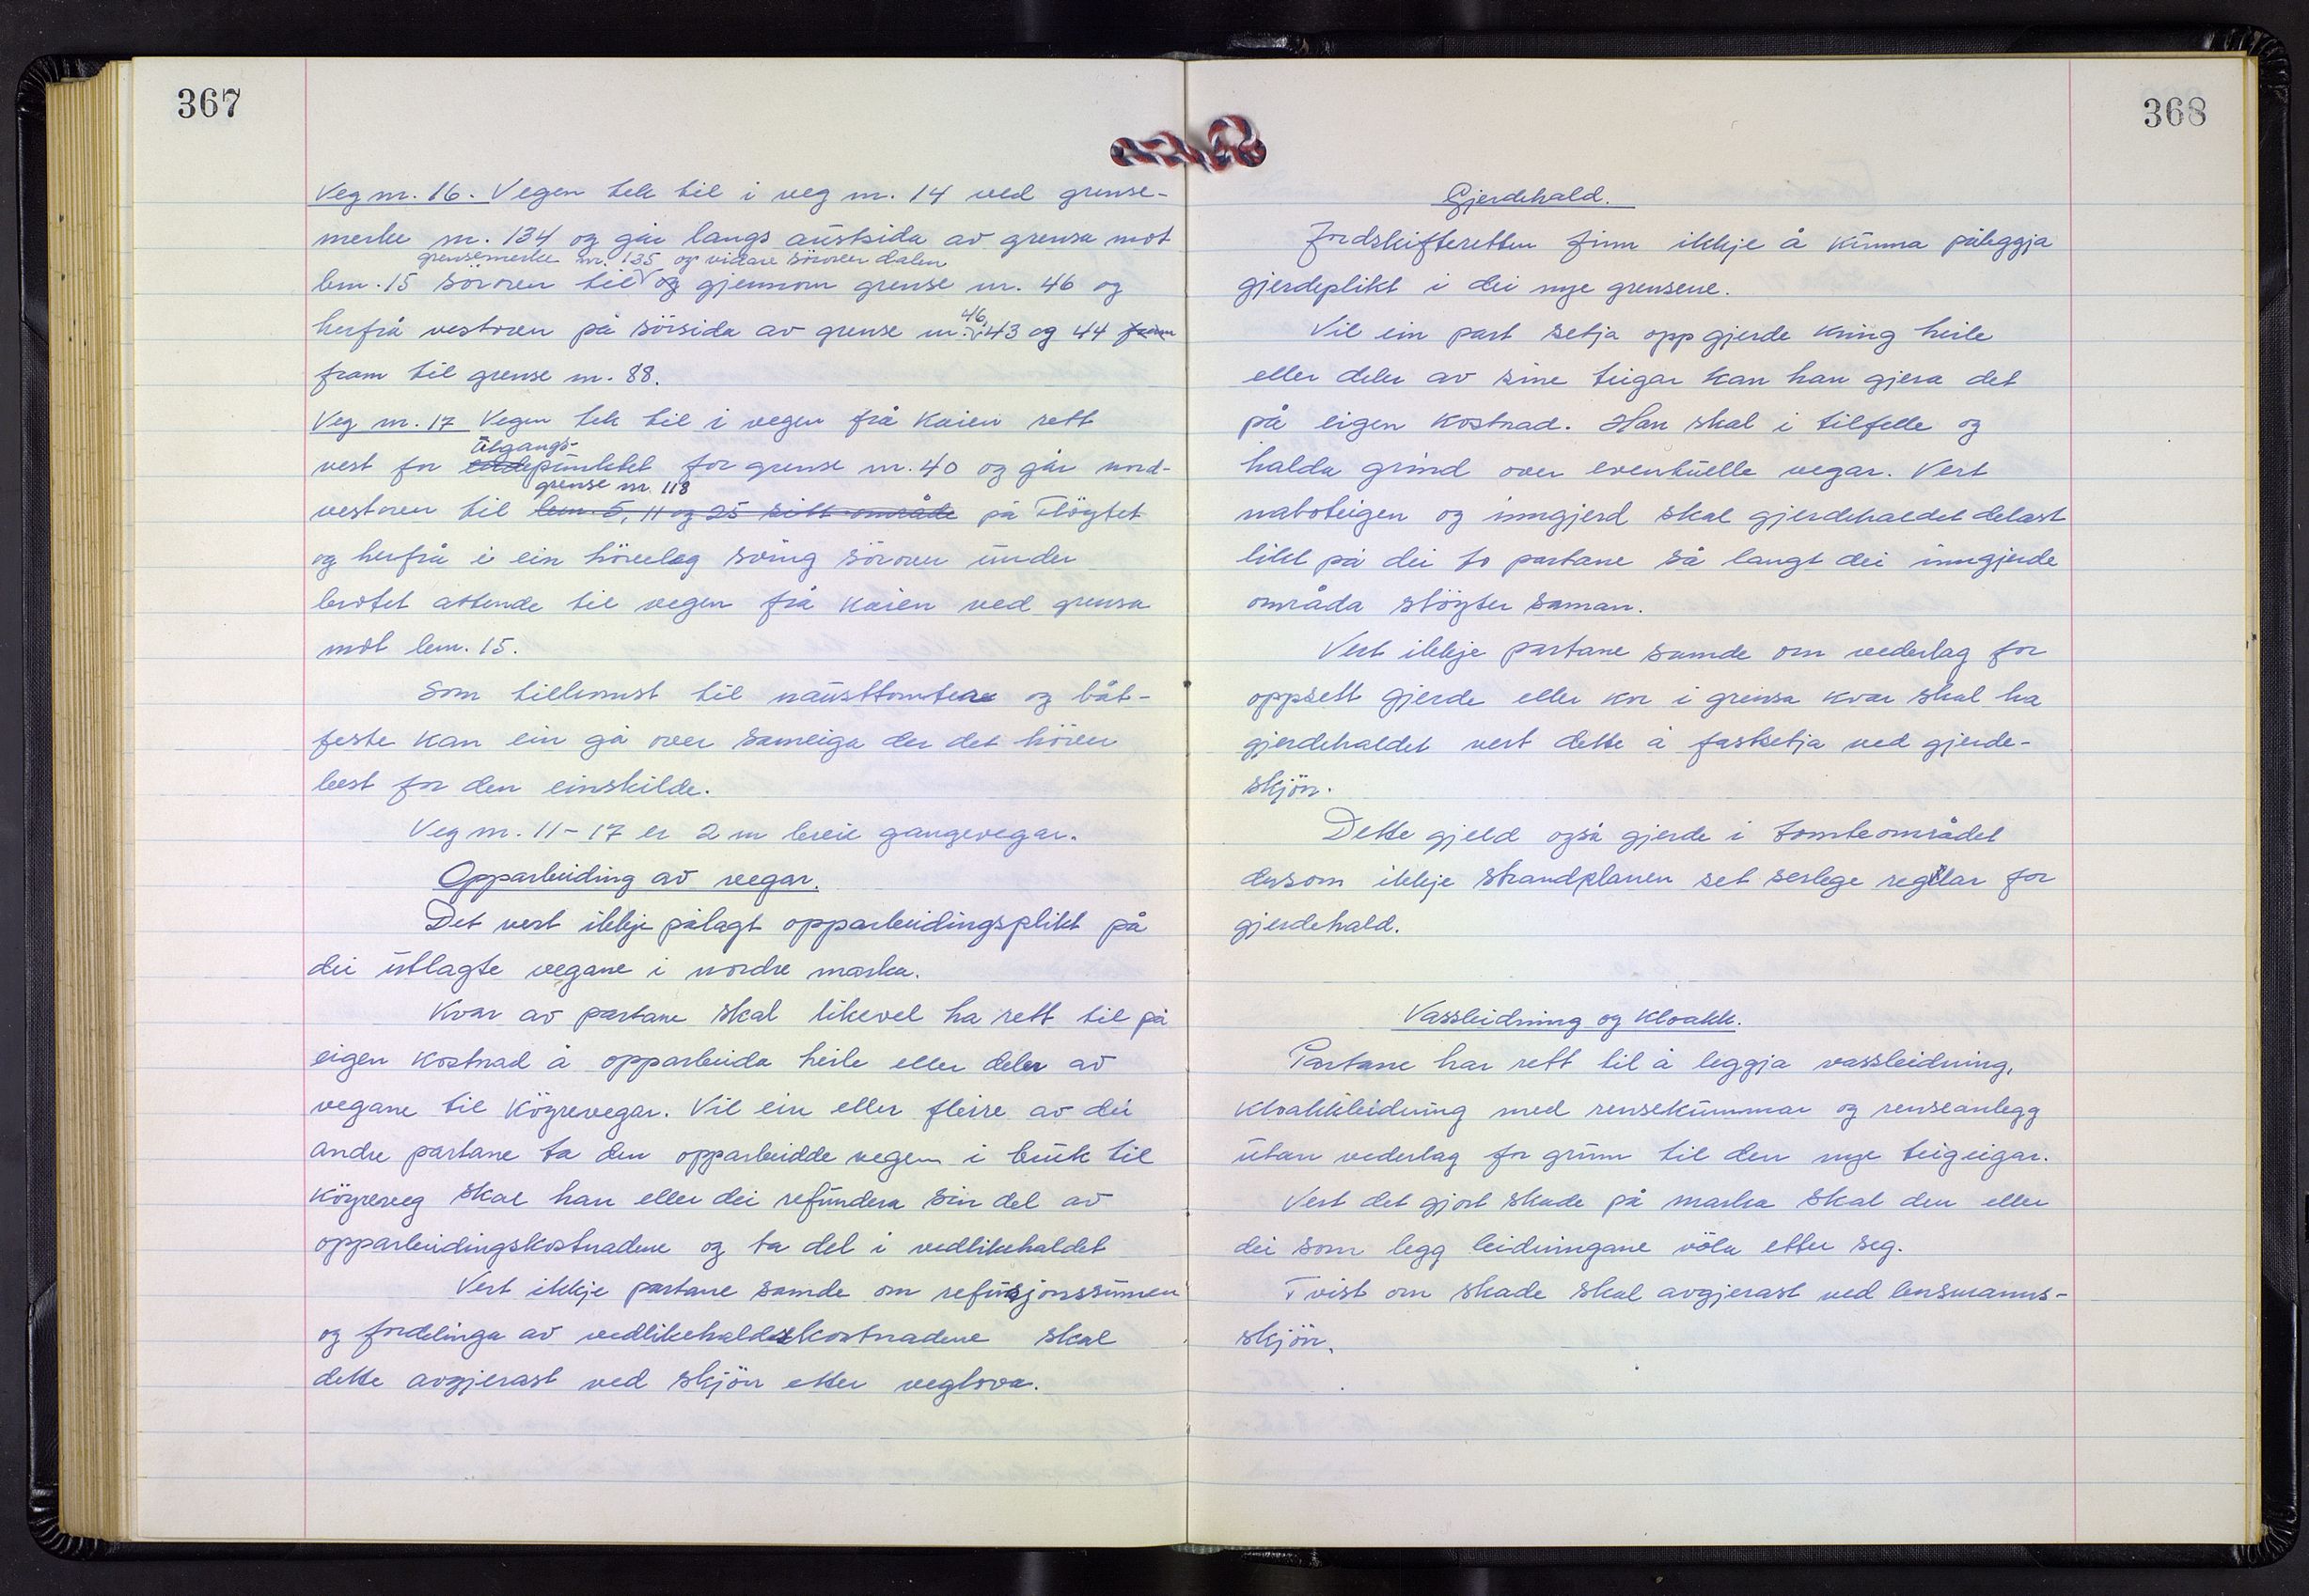 367
Veg nr. 16. Vegen tek til i veg nr. 14 ved grense-
merke nr. 134 og går langs austsida av grensa mot
grensemerke nr. 135 og vidare söröver dalen
bnr. 15 söröver til og gjennom grense nr. 46 og
46,
herfrå vestover på sörsida av grense nr. 43 og 44 fram
fram til grense nr. 88.
Veg nr. 17 Vegen tek til i vegen frå kaien rett
tilgangs-
vest for endepunktet for grense nr. 40 og går nord-
grense nr. 118
vestover til bnr. 5, 11 og 25 sitt område på Flöytet
og herfrå i ein höveleg sving söröver under
brotet attende til vegen frå kaien ved grensa
mot bnr. 15.
Som tilkomst til nausttomtene og båt-
feste kan ein gå over sameiga der det höver
best for den einskilde.
Veg nr. 11-17 er 2 m breie gangevegar.
Opparbeiding av vegar.
Det vert ikkje pålagt opparbeidingsplikt på
dei utlagte vegane i nordre marka.
Kvar av partane skal likevel ha rett til på
eigen kostnad å opparbeida heile eller deler av
vegane til köyrevegar. Vil ein eller fleire av dei
andre partane ta den opparbeidde vegen i bruk til
köyreveg skal han eller dei refundera sin del av
opparbeidingskostnadene og ta del i vedlikehaldet
Vert ikkje partane samde om refusjonssumen
og fordelinga av vedlikehaldskostnadene skal
dette avgjerast ved skjön etter veglova.
368
Gjerdehald.
Jordskifteretten finn ikkje å kunna påleggja
gjerdeplikt i dei nye grensene.
Vil ein part setja opp gjerde kring heile
eller deler av sine teigar kan han gjera det
på eigen kostnad. Han skal i tilfelle og
halda grind over eventuelle vegar. Vert
naboteigen og inngjerd skal gjerdehaldet delast
likt på dei to partane så langt dei inngjerde
områda stöyter saman.
Vert ikkje partane samde om vederlag for
oppsett gjerde eller kor i grensa kvar skal ha
gjerdehaldet vert dette å fastsetja ved gjerde-
skjön.
Dette gjeld også gjerde i tomteområdet
dersom ikkje strandplanen set serlege reglar for
gjerdehald.
Vassleidning og kloakk.
Partane har rett til å leggja vassleidning,
kloakkleidning med rensekummar og renseanlegg
utan vederlag for grunn til den nye teigeigar.
Vert det gjort skade på marka skal den eller
dei som legg leidningane völa etter seg.
Tvist om skade skal avgjerast ved lensmanns-
skjön.